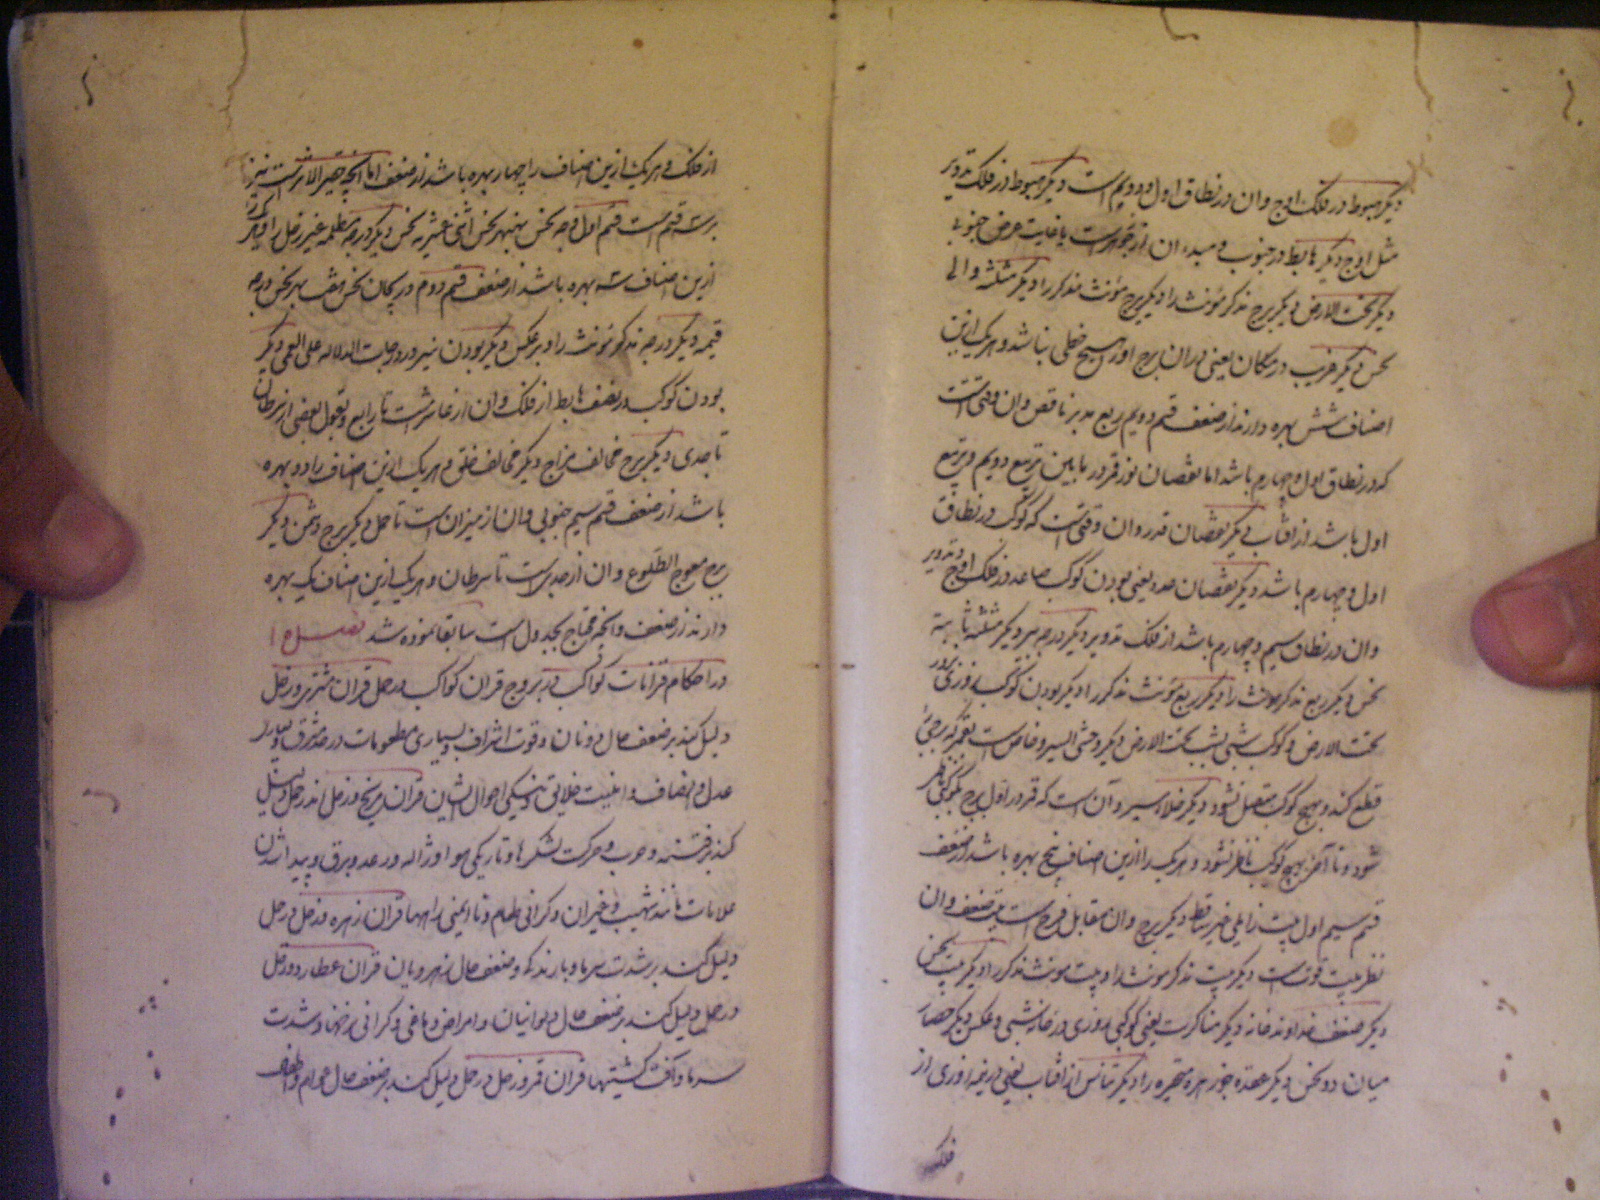 دیگر هبوط در فلک اوج و ان در نطاق اول و دویم است دیگر هبوط در فلک تدویر
مثل اوج دیگر هابط در جنوب و مبدء ان از جوزهر است تا غایت عرض جنوب
دیگر تحت الارض دیگر برج مذکر مؤنث را دیگر برج مؤنث مذکر را دیگر مثلثه والی
نحس دیگر غریب در مکان یعنی در ان برج او را هیچ حظی نباشد و هر یک ازین
اصناف شش بهره دارند از ضعف قسم دویم ربع مدبر ناقص و ان وقتی است
که در نطاق اول و چهارم باشد اما نقصان نور قمر در مابین تربیع دویم و تربیع
اول باشد از افتاب دیگر نقصان قدر و ان وقتی است که کوکب در نطاق
اول و چهارم باشد دیگر نقصان عدد یعنی بودن کوکب صاعد در فلک اوج و تدویر
و ان در نطاق سیم و چهارم باشد از فلک تدویر دیگر درجه بیر دیگر مثلثه ثابته
نحس دیگر ربع مذکر مونث را دیگر ربع مؤنث مذکر را دیگر بودن کوکب روزی بروز
تحت الارض و کوکب شبی بشب تحت الارض دیگر وحشی السیر و خاص است بقمر که برجی
قطع کند و بهیچ کوکب متصل نشود دیگر خلاء سیر و آن است که قمر در اول برج بکوکبی ناظر
شود و تا آخر بهیچ کوکب ناظر نشود و هر یک را ازین اصناف پنج بهره باشد از ضعف
قسم سیم اول بیت زایلی غیر ساقط دیگر برج و ان مقابل فرح است بیت ضعف و ان
نظر بیت قوتست دیگر بیت مذکر مونث را و بیت مونث مذکر را دیگر بیت نحس
دیگر ضعف خداوند خانه دیگر مناکرت یعنی کوکبی روزی در خانه شبی و عکس دیگر حصار
میان دو نحس دیگر عقده جوزهر متحیره را دیگر تناس از افتاب یعنی در نیمه اوزی از
فلک
از فلک و هر یک ازین اصناف را چهار بهره باشد از ضعف اما آنچه حقیر الاثر است نیز
برسه قسم است قسم اول وجه نحس بنهبهر نحس اثنی عشریه نحس دیگر درجه مظلمه غیر زحل را هر یک را
ازین اصناف سه بهره باشد از ضعف قسم دوم دریجان نحس هفت بهر نحس درجه
قیمه دیگر درجه مذکر مؤنث را و بر عکس دیگر بودن نیر در درجات الدلاله علی العمی دیگر
بودن کوکب در نصف هابط از فلک و ان از عاشر است تا رابع و بقول بعضی از سرطان
تا جدی دیگر برج مخالف مزاج دیگر مخالف خلق و هر یک ازین اصناف را دو بهره
باشد از ضعف قسم سیم جنوبی و ان از میزان است تا حمل دیگر برج دشمن دیگر
برج معوج الطلوع و ان از جدیست تا سرطان و هر یک ازین اصناف یک بهره
دارند از ضعف و آنچه محتاج بجدول است سابقا نموده شد فصل ا
در احکام قرانات کواکب در بروج قران کواکب در حمل قران مشتری و زحل
دلیل کند بر ضعف حال دونان و قوت اشراف و بسیاری مطعومات در حد شرق و بسیار
عدل و انصاف و امنیت خلایق و نیکی احوال ایشان قران مریخ و زحل اندر حمل دلیل
کند بر فتنه و حرب و حرکت لشکرها و تاریکی هوا و ژاله و رعد و برق و پیدا شدن
علامات مانند شهب و نیران و کرانی طعام و نا ایمنی راهها قران زهره و زحل در حمل
دلیل کند بر شدت سرما و بارندکی و ضعف حال مهرویان قران عطارد و زحل
در حمل دلیل کند بر ضعف حال دیوانیان و امراض دماغی و کرانی نرخها و شدت
سرما و آفت کشتیها قران قمر و زحل در حمل دلیل کند بر ضعف حال عوام و